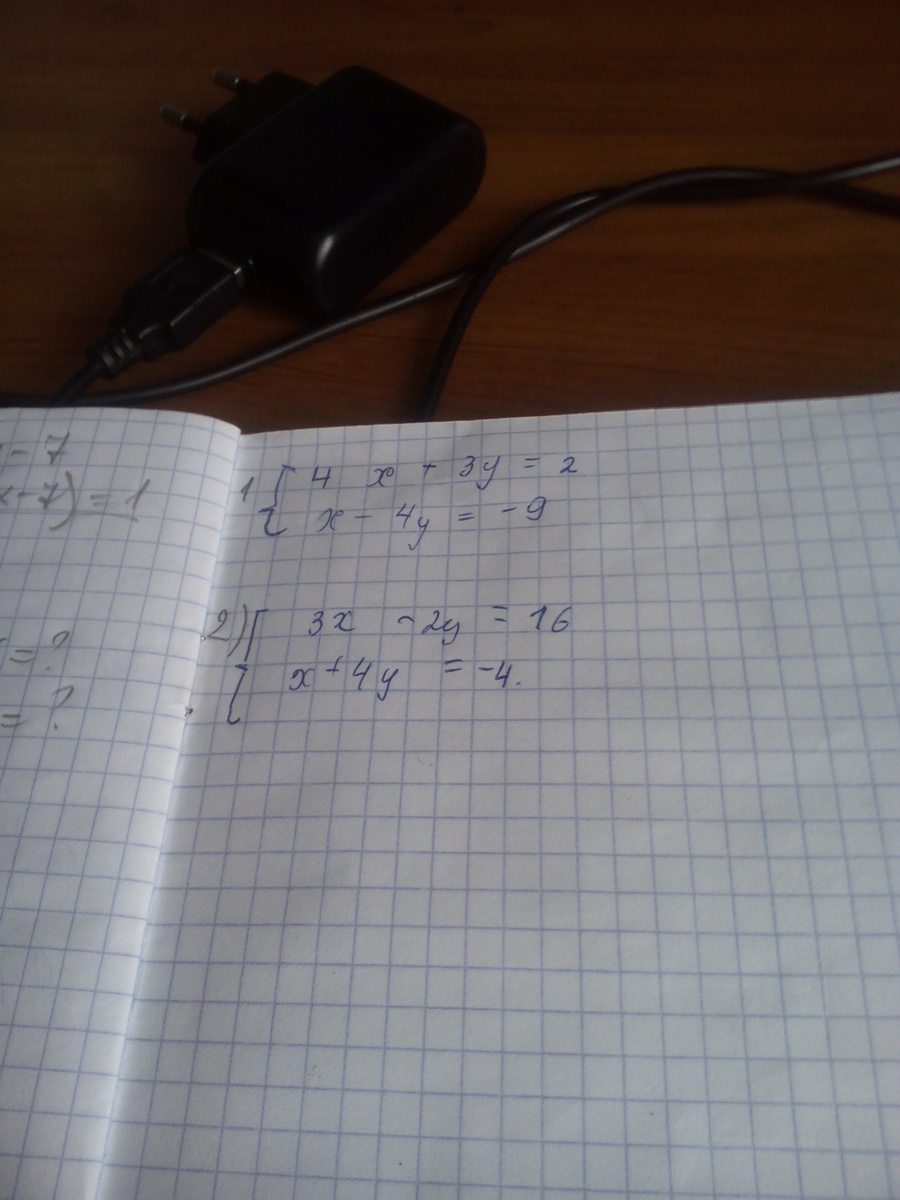 - 7
x-7) = 1
= ?
= ?
1 { 4 x + 3y = 2
x - 4y = -9
2) { 3x - 2y = 16
x + 4y = -4.